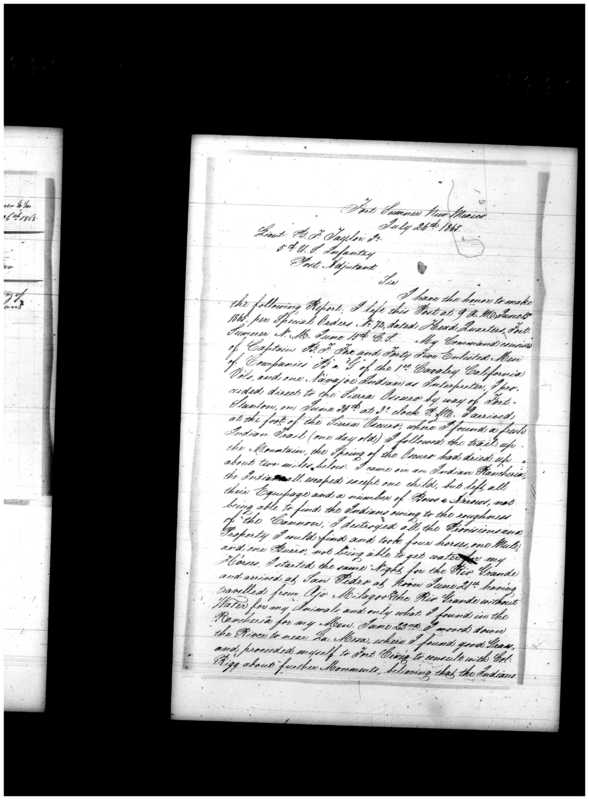 Fort Sumner New Mexico
July 26th 1865
Lieut. H. F. Taylor Jr.
5th U. S Infantry
Post Adjutant
Sir
I have the honor to make
the following Report, I left this Post at 9 A. M. June 15th
1865, per Special Orders No. 70, dated Head Quarters, Fort
Sumner N. M. June 14th C. S. My Command consisted
of Captain and Forty Five Enlisted Men
of Companies of the 1st Cavalry California
Vols, and one Navajoe Indian as Interpreter, I pro-
ceeded direct to the Sierra Oscuro by way of Fort
Stanton, on June at 3 o'clock P. M. I arrived
at the foot of the Sierra Oscuro, where I found a fresh
Indian Trail (one day old) I followed the trail up
the Mountain, the Spring of the Oscuro had dried up
about two miles below I came on an Indian Rancheria,
the Indians all escaped except one child, but left all
their Equipage and a number of Bows & Arrows, not
being able to find the Indians owing to the roughness
of the Cannon, I destroyed all the Provisions and
Property I could find and took four horses, one Mule
and one Burro, not being able to get water for my
Horses, I started the same Night for the Rio Grande
and arrived at San Pedro at Noon June 21st having
travelled from Ojo Milagro to the Rio Grande without
Water for my Animals and only what I found in the
Rancheria for my Men. June 22nd I moved down
the River to near La Mesa, where I found good Grass,
and proceeded myself to Fort Craig to consult with Col
Rigg about further Movements, believing that the Indians